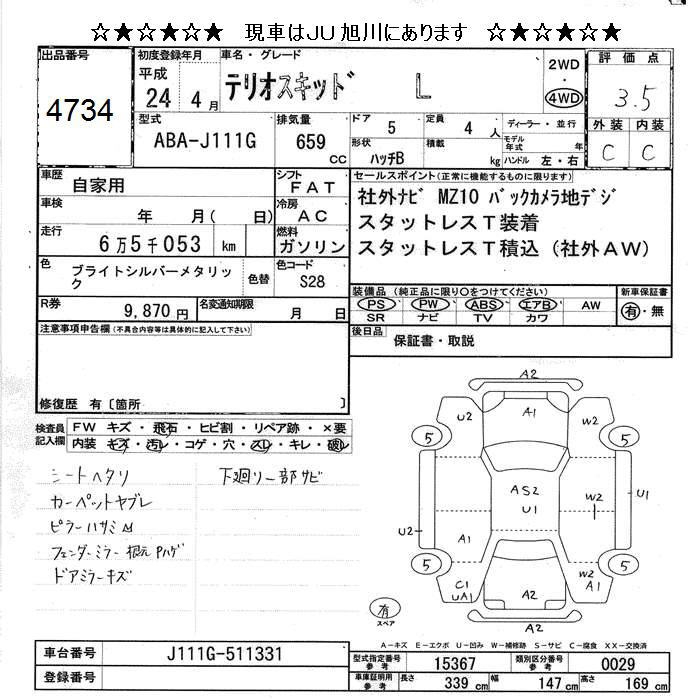 ☆★☆★☆★ 現車はＪＵ旭川にあります ☆★☆★☆★
出品番号
4734
初度登録年月
平成
24年 4月
車名・グレード
テリオスキッド L
2WD
・
4WD
評価点
3.5
外装 内装
C C
型式
ABA-J111G
排気量
659 CC
ドア 5
定員 4 人
形状 ハッチB
積載 kg
ディーラー・並行
モデル年式 年
ハンドル 左・右
車歴 自家用
シフト FAT
車検 年 月( 日)
冷房 AC
走行 6万5千053 km
燃料 ガソリン
色 ブライトシルバーメタリック
色替
色コード S28
R券 9,870円
名変通知期限 月 日
セールスポイント(正常に機能するものに限ります)
社外ナビ MZ10 バックカメラ地デジ
スタットレスT装着
スタットレスT積込(社外AW)
装備品(純正品に限り○をつけてください)
PS・PW・ABS・エアB・AW
SR ナビ TV カワ
新車保証書
有・無
後日品 保証書・取説
注意事項申告欄(不具合内容等は具体的に記入して下さい)
修復歴 有〔箇所 〕
検査員記入欄
FW キズ・飛石・ヒビ割・リペア跡・×要
内装 キズ・汚レ・コゲ・穴・スレ・キレ・破レ
シートヘタリ
カーペットヤブレ
ピラーハサミ凹
フェンダーミラー根元Pハゲ
ドアミラーキズ
下廻り一部サビ
A2
U2
A1
W2
5
5
AS2
U1
W2
U1
U2
A1
5
5
C1
UA1
A2
W2
A1
A2
有
スペア
A－キズ E－エクボ U－凹み W－補修跡 S－サビ C－腐食 XX－交換済
車台番号 J111G-511331
登録番号
型式指定番号 参考 15367
類別区分番号 参考 0029
車庫証明用 参考 長さ 339 cm 幅 147 cm 高さ 169 cm